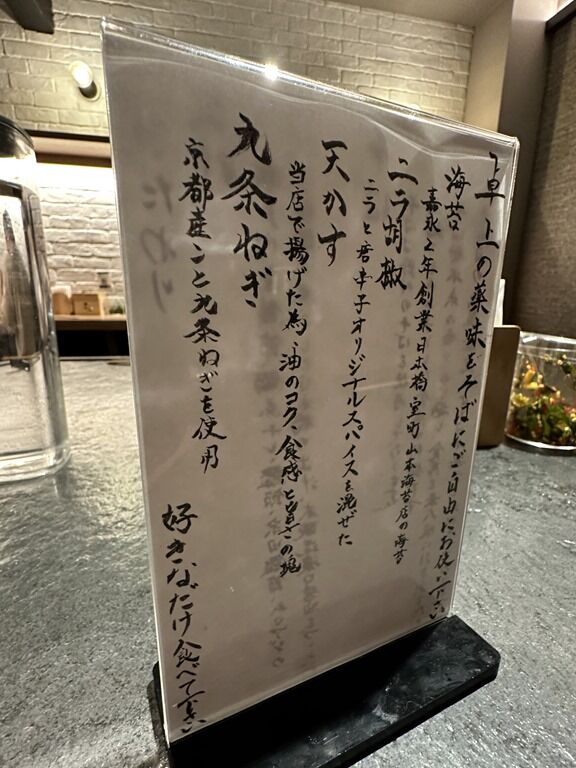 卓上の薬味をそばにご自由にお使い下さい
海苔
嘉永2年創業日本橋室町山本海苔店の海苔
ニラ胡椒
ニラと唐辛子オリジナルスパイスを混ぜた
天かす
当店で揚げた為、油のコク、食感と旨さの塊
九条ねぎ
京都産こと九条ねぎを使用
好きなだけ食べて下さい